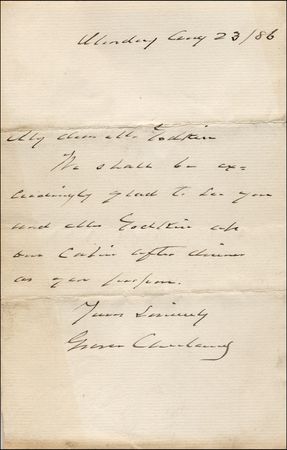 Monday Aug 23/86
My dear Mr. Godkin
We shall be ex-
ceedingly glad to see you
and Mrs Godkin at
our Cabin after dinner
as you propose.
Yours Sincerely
Grover Cleveland